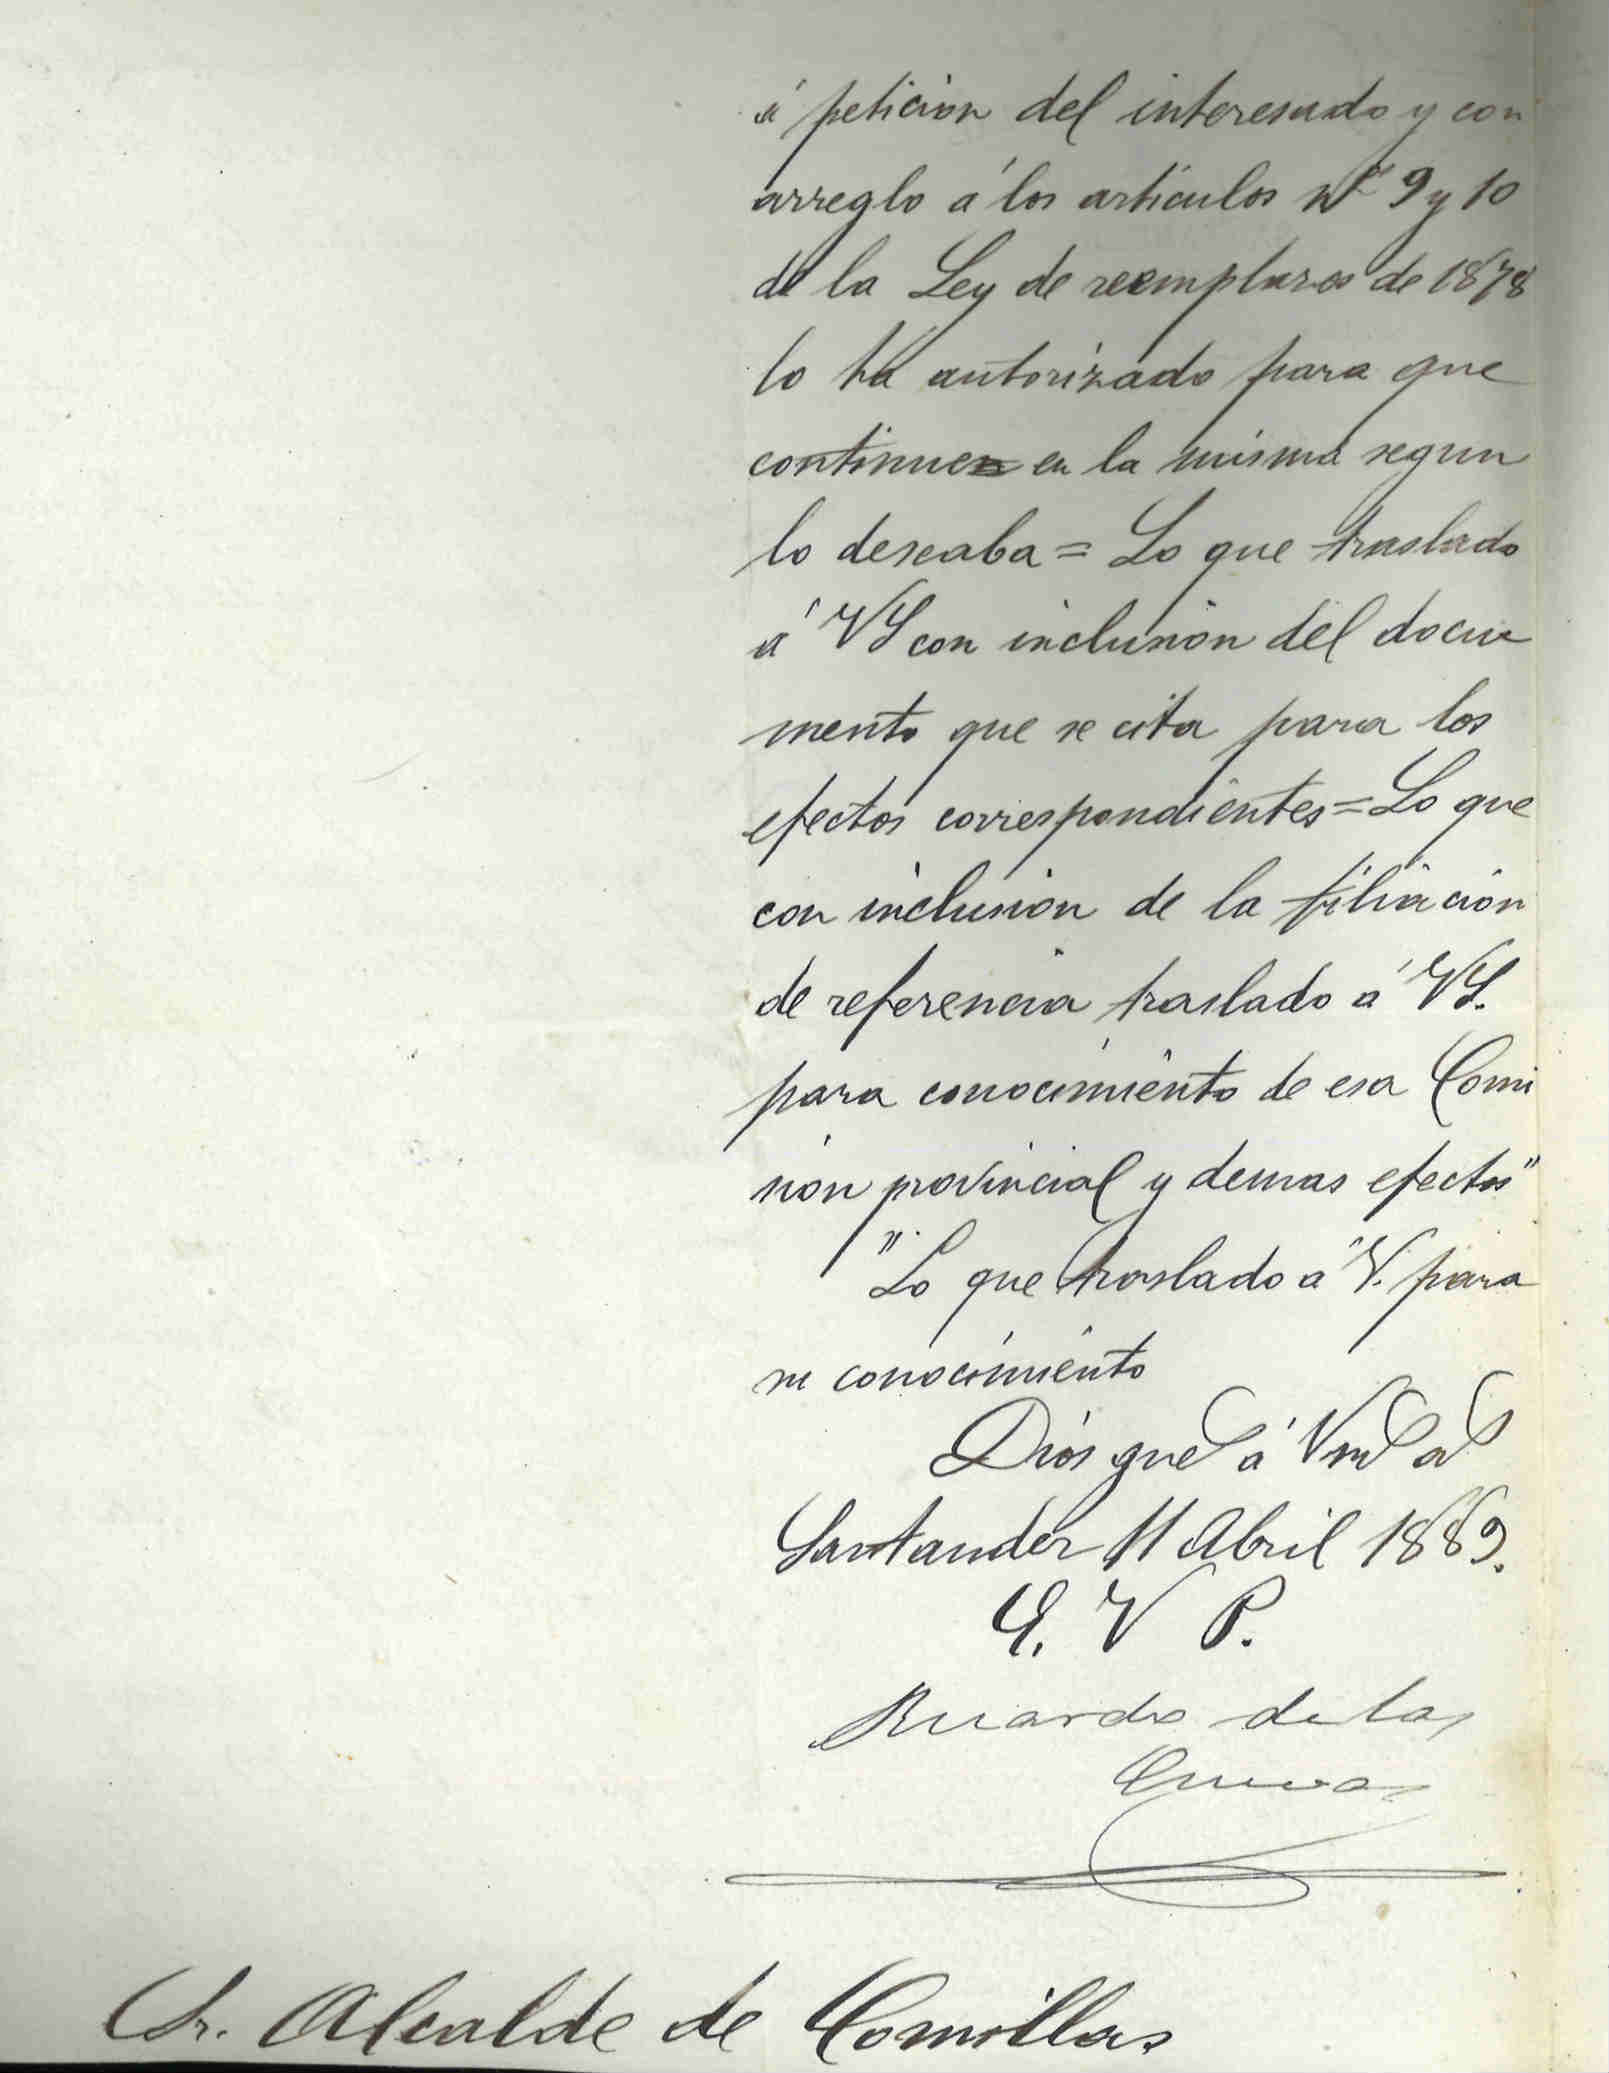 á peticion del interesado y con
arreglo á los articulos nos 9 y 10
de la Ley de reemplazos de 1878
lo ha autorizado para que
continue en la misma segun
lo deseaba = Lo que traslado
á VS con inclusion del docu
mento que se cita para los
efectos correspondientes = Lo que
con inclusion de la filiación
de referencia traslado á VS.
para conocimiento de esa Comi
sion provincial y demas efectos"
"Lo que traslado á V. para
su conocimiento
Dios gue á Vmd as
Santander 11 Abril 1889.
E. V P.
Ricardo de las
Cuevas
Sr. Alcalde de Comillas